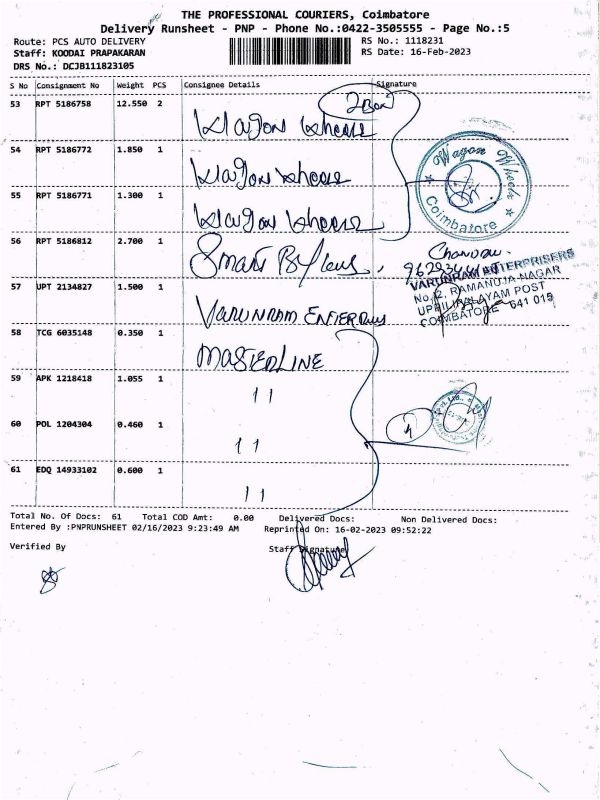 THE PROFESSIONAL COURIERS, Coimbatore
Delivery Runsheet - PNP - Phone No.:0422-3505555 - Page No.:5
Route: PCS AUTO DELIVERY
RS No.: 1118231
Staff: KOODAI PRAPAKARAN
RS Date: 16-Feb-2023
DRS No.: DCJB111823105
S No Consignment No Weight PCS Consignee Details Signature
53 RPT 5186758 12.550 2 Wagon Wheels 2 Box
54 RPT 5186772 1.850 1 Wagon Wheels
55 RPT 5186771 1.300 1 Wagon Wheels
Wagon Wheels
Coimbatore
56 RPT 5186812 2.700 1 Smart
VARUNRAM ENTERPRISERS
No. 2, RAMANUJA NAGAR
UPPILIPALAYAM POST
COIMBATORE - 641 015
57 UPT 2134827 1.500 1 VARUNRAM ENTERPRISES
58 TCG 6035148 0.350 1 MASTERLINE
59 APK 1218418 1.055 1 11
60 POL 1204304 0.460 1 11
4
61 EDQ 14933102 0.600 1 11
Total No. Of Docs: 61 Total COD Amt: 0.00 Delivered Docs: Non Delivered Docs:
Entered By :PNPRUNSHEET 02/16/2023 9:23:49 AM Reprinted On: 16-02-2023 09:52:22
Verified By
Staff Signature